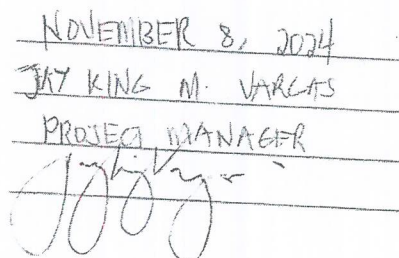 NOVEMBER 8, 2024
JAY KING M. VARGAS
PROJECT MANAGER